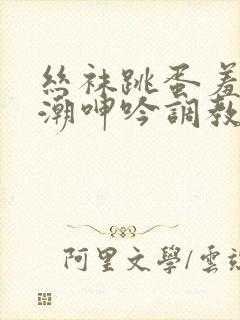 絲袜跳蛋羞
潮呻吟調教
阿里文學/雲